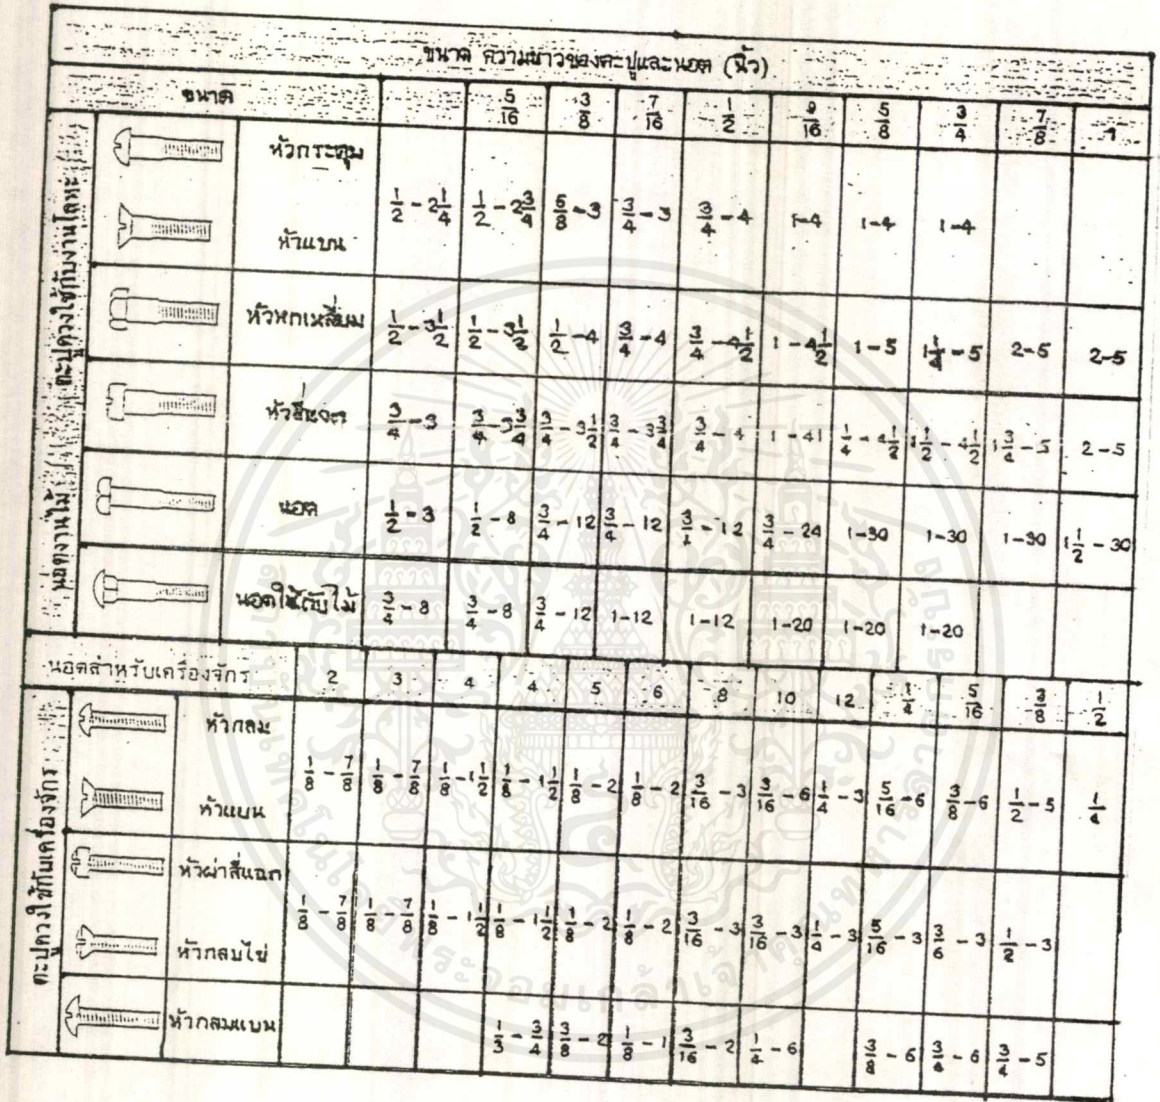 ขนาด ความยาวของตะปูและนอต (นิ้ว)
ขนาด 5/16 3/8 7/16 1/2 9/16 5/8 3/4 7/8 1
ตะปูควงใช้กับงานโลหะ
หัวกระดุม
1/2 - 2 1/4 1/2 - 2 3/4 5/8 - 3 3/4 - 3 3/4 - 4 1-4 1-4 1-4
หัวแบน
หัวหกเหลี่ยม 1/2 - 3 1/2 1/2 - 3 1/2 1/2 - 4 3/4 - 4 3/4 - 4 1/2 1 - 4 1/2 1 - 5 1 1/4 - 5 2-5 2-5
3/4 - 3 3/4 - 3 3/4 3/4 - 3 1/2 3/4 - 3 3/4 3/4 - 4 1 - 41 1/4 - 4 1/2 1 1/2 - 4 1/2 1 3/4 - 5 2-5
นอตงานไม้
นอต 1/2 - 3 1/2 - 8 3/4 - 12 3/4 - 12 3/4 - 12 3/4 - 24 1-30 1-30 1-30 1 1/2 - 30
นอตใช้กับไม้ 3/4 - 8 3/4 - 8 3/4 - 12 1-12 1-12 1-20 1-20 1-20
นอตสำหรับเครื่องจักร 2 3 4 4 5 6 8 10 12 1/4 5/16 3/8 1/2
ตะปูควงใช้กับเครื่องจักร
หัวกลม
1/8 - 7/8 1/8 - 7/8 1/8 - 1 1/2 1/8 - 1 1/2 1/8 - 2 1/8 - 2 3/16 - 3 3/16 - 6 1/4 - 3 5/16 - 6 3/8 - 6 1/2 - 5 1/4
หัวแบน
หัวผ่าสี่แฉก
1/8 - 7/8 1/8 - 7/8 1/8 - 1 1/2 1/8 - 1 1/2 1/8 - 2 1/8 - 2 3/16 - 3 3/16 - 3 1/4 - 3 5/16 - 3 3/6 - 3 1/2 - 3
หัวกลมไข่
หัวกลมแบน 1/3 - 3/4 3/8 - 2 1/8 - 1 3/16 - 2 1/4 - 6 3/8 - 6 3/4 - 6 3/4 - 5